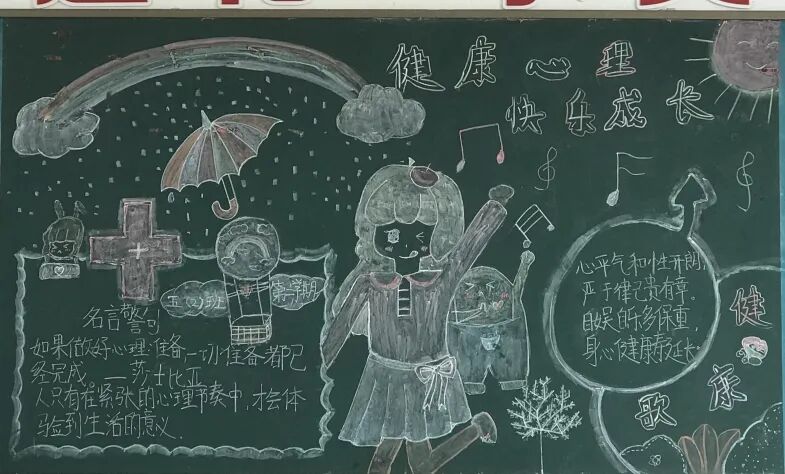 健康心理
快乐成长
五(2)班
第二学期
名言警句
如果做好心理准备,一切准备都已
经完成。——莎士比亚
人只有在紧张的心理节奏中,才会体
验到生活的意义.
心平气和性开朗,
严于律己贵有章。
自娱自乐多保重,
身心健康寿延长
健康歌